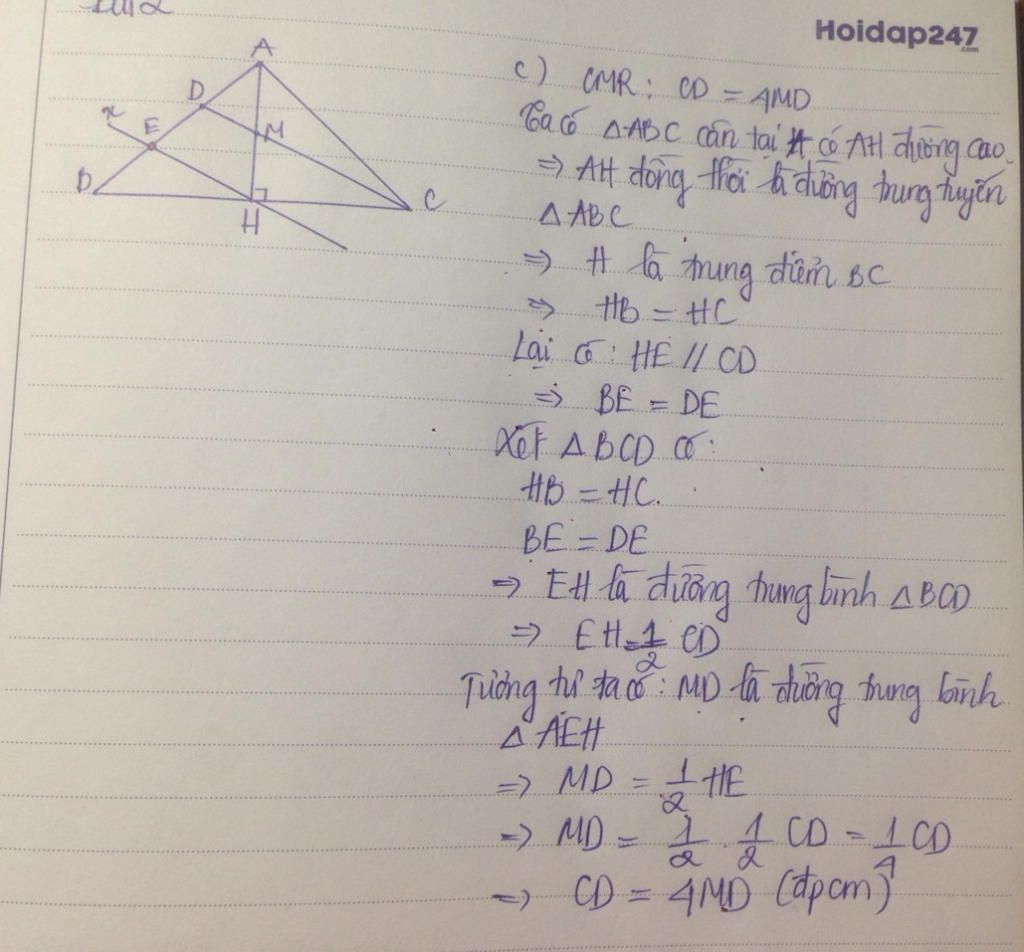 Hoidap247
.com
A
D
x
E
M
B
C
H
c) CMR: CD = 4MD
Ta có △ABC cân tại A có AH đường cao.
=> AH đồng thời là đường trung tuyến
△ABC
=> H là trung điểm BC
=> HB = HC
Lại có: HE // CD
=> BE = DE
Xét △BCD có:
HB = HC.
BE = DE
=> EH là đường trung bình △BCD
=> EH = 1/2 CD
Tương tự ta có: MD là đường trung bình
△AEH
=> MD = 1/2 HE
=> MD = 1/2 . 1/2 CD = 1/4 CD
=> CD = 4MD (đpcm)